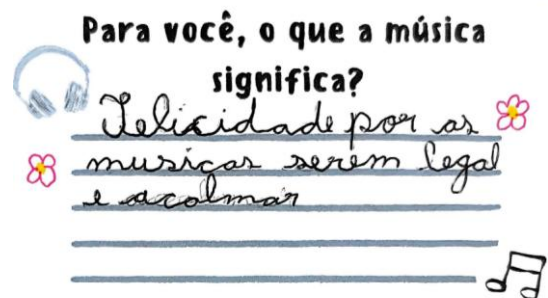 Para você, o que a música
significa?
Felicidade por as
musicas serem legal
e acalmar